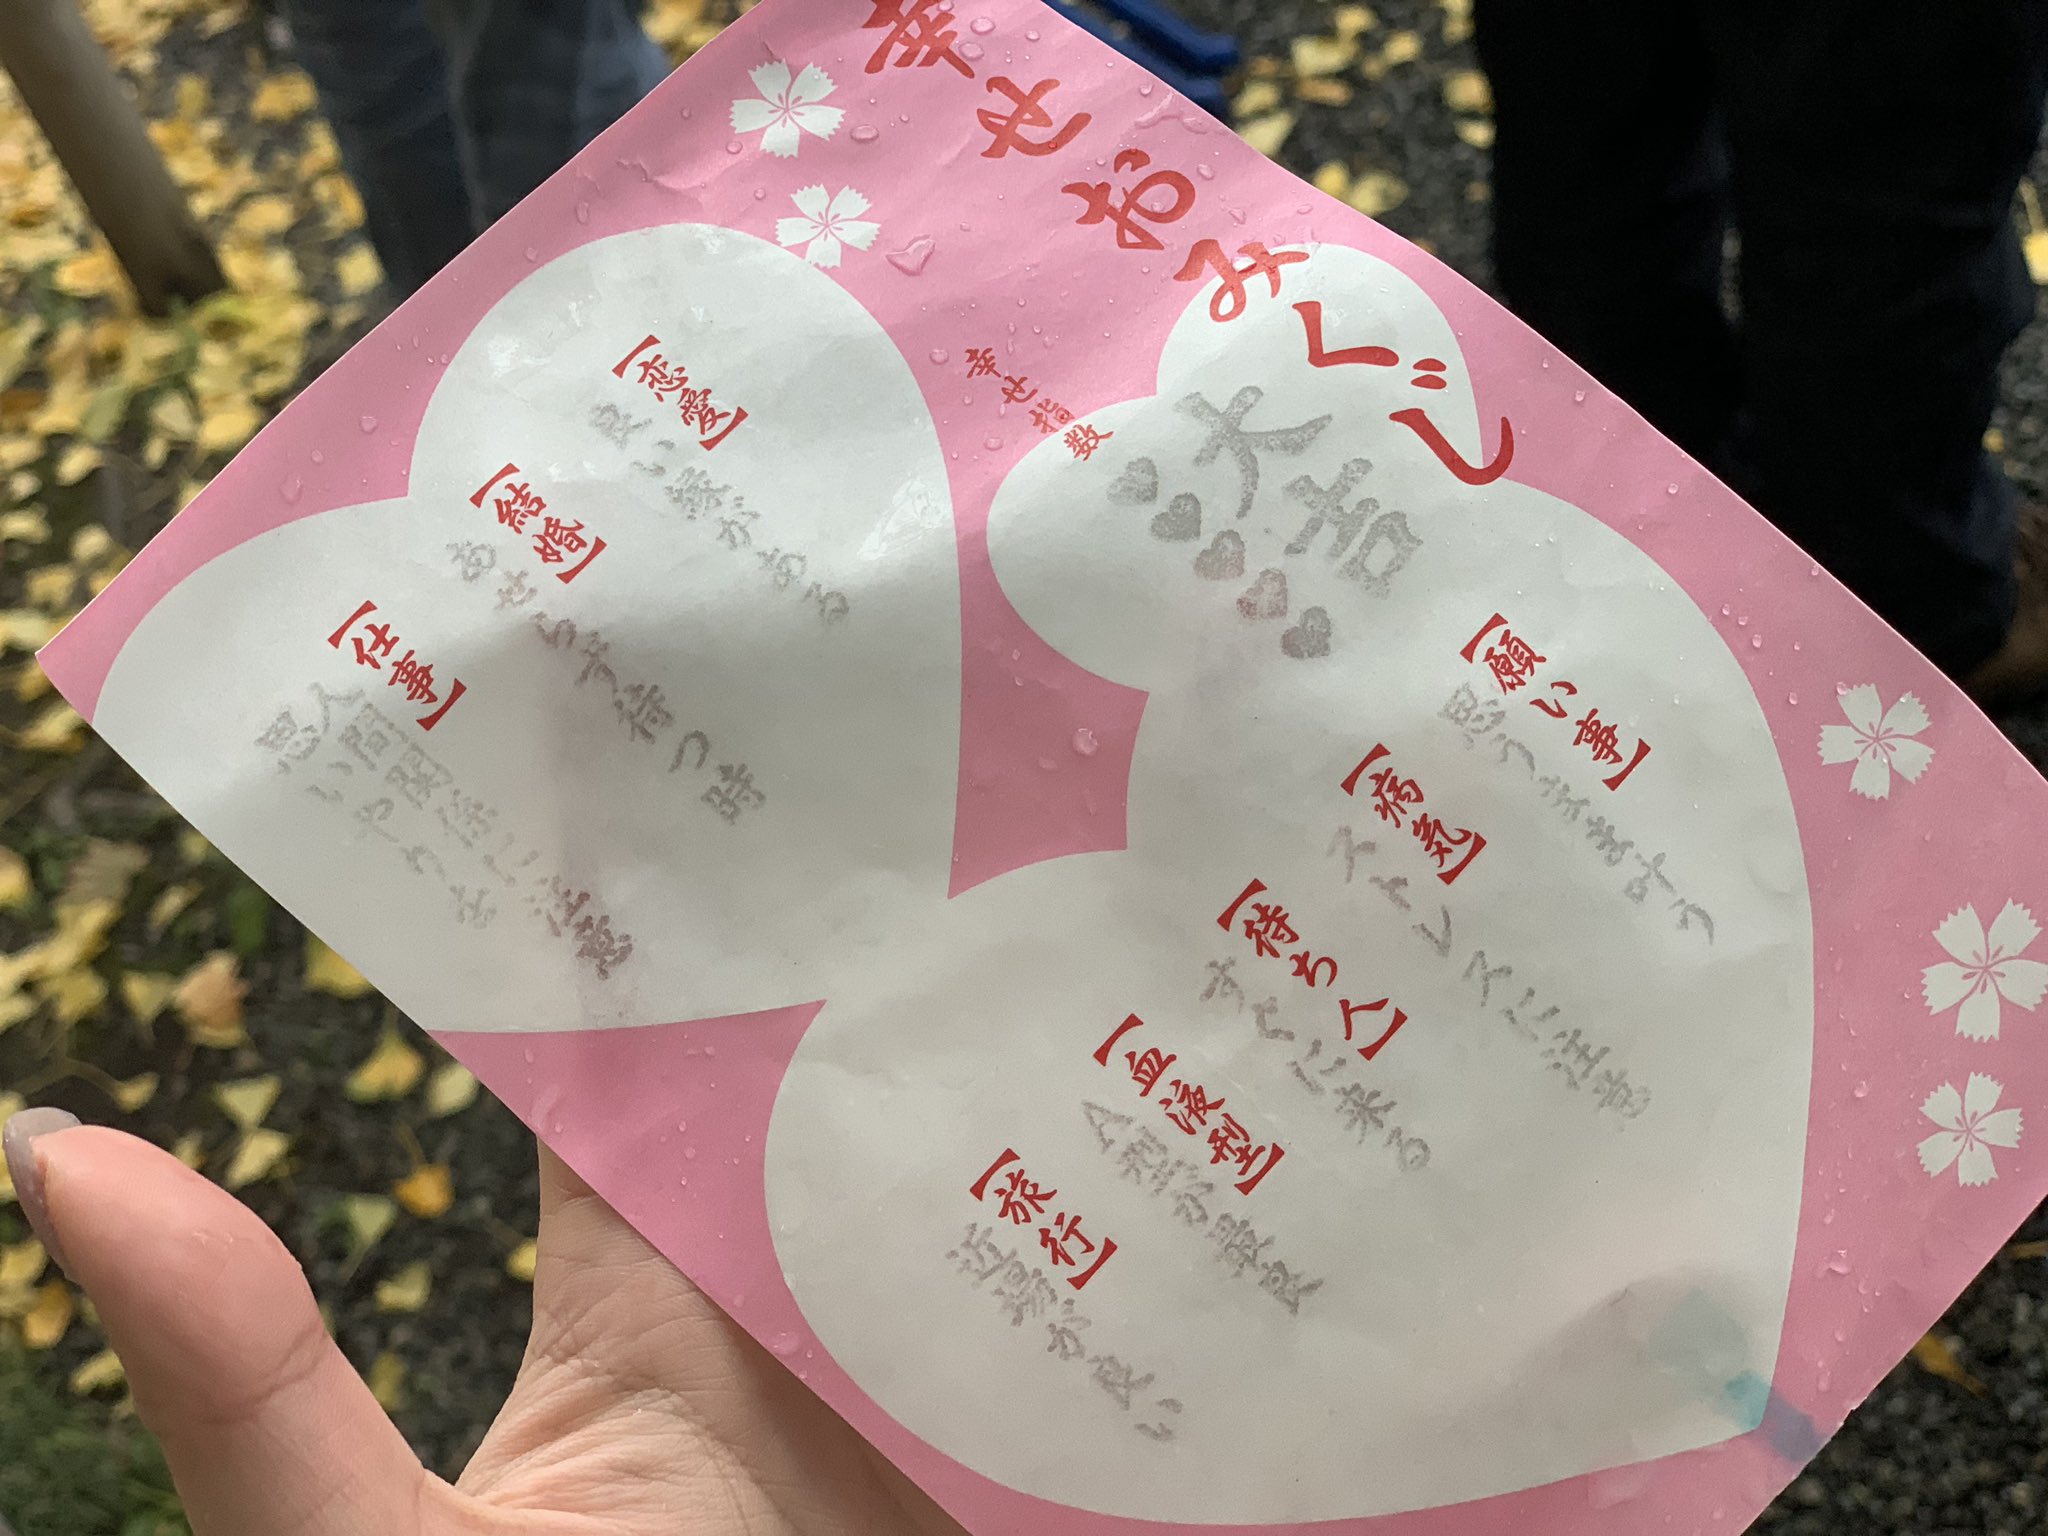 幸せおみくじ
大吉
幸せ指数
♥♥♥♥♥
【願い事】
思うまま叶う
【病気】
ストレスに注意
【待ち人】
すぐに来る
【血液型】
A型が最良
【旅行】
近場が良い
【恋愛】
良い縁がある
【結婚】
あせらず待つ時
【仕事】
人間関係に注意
思いやりを